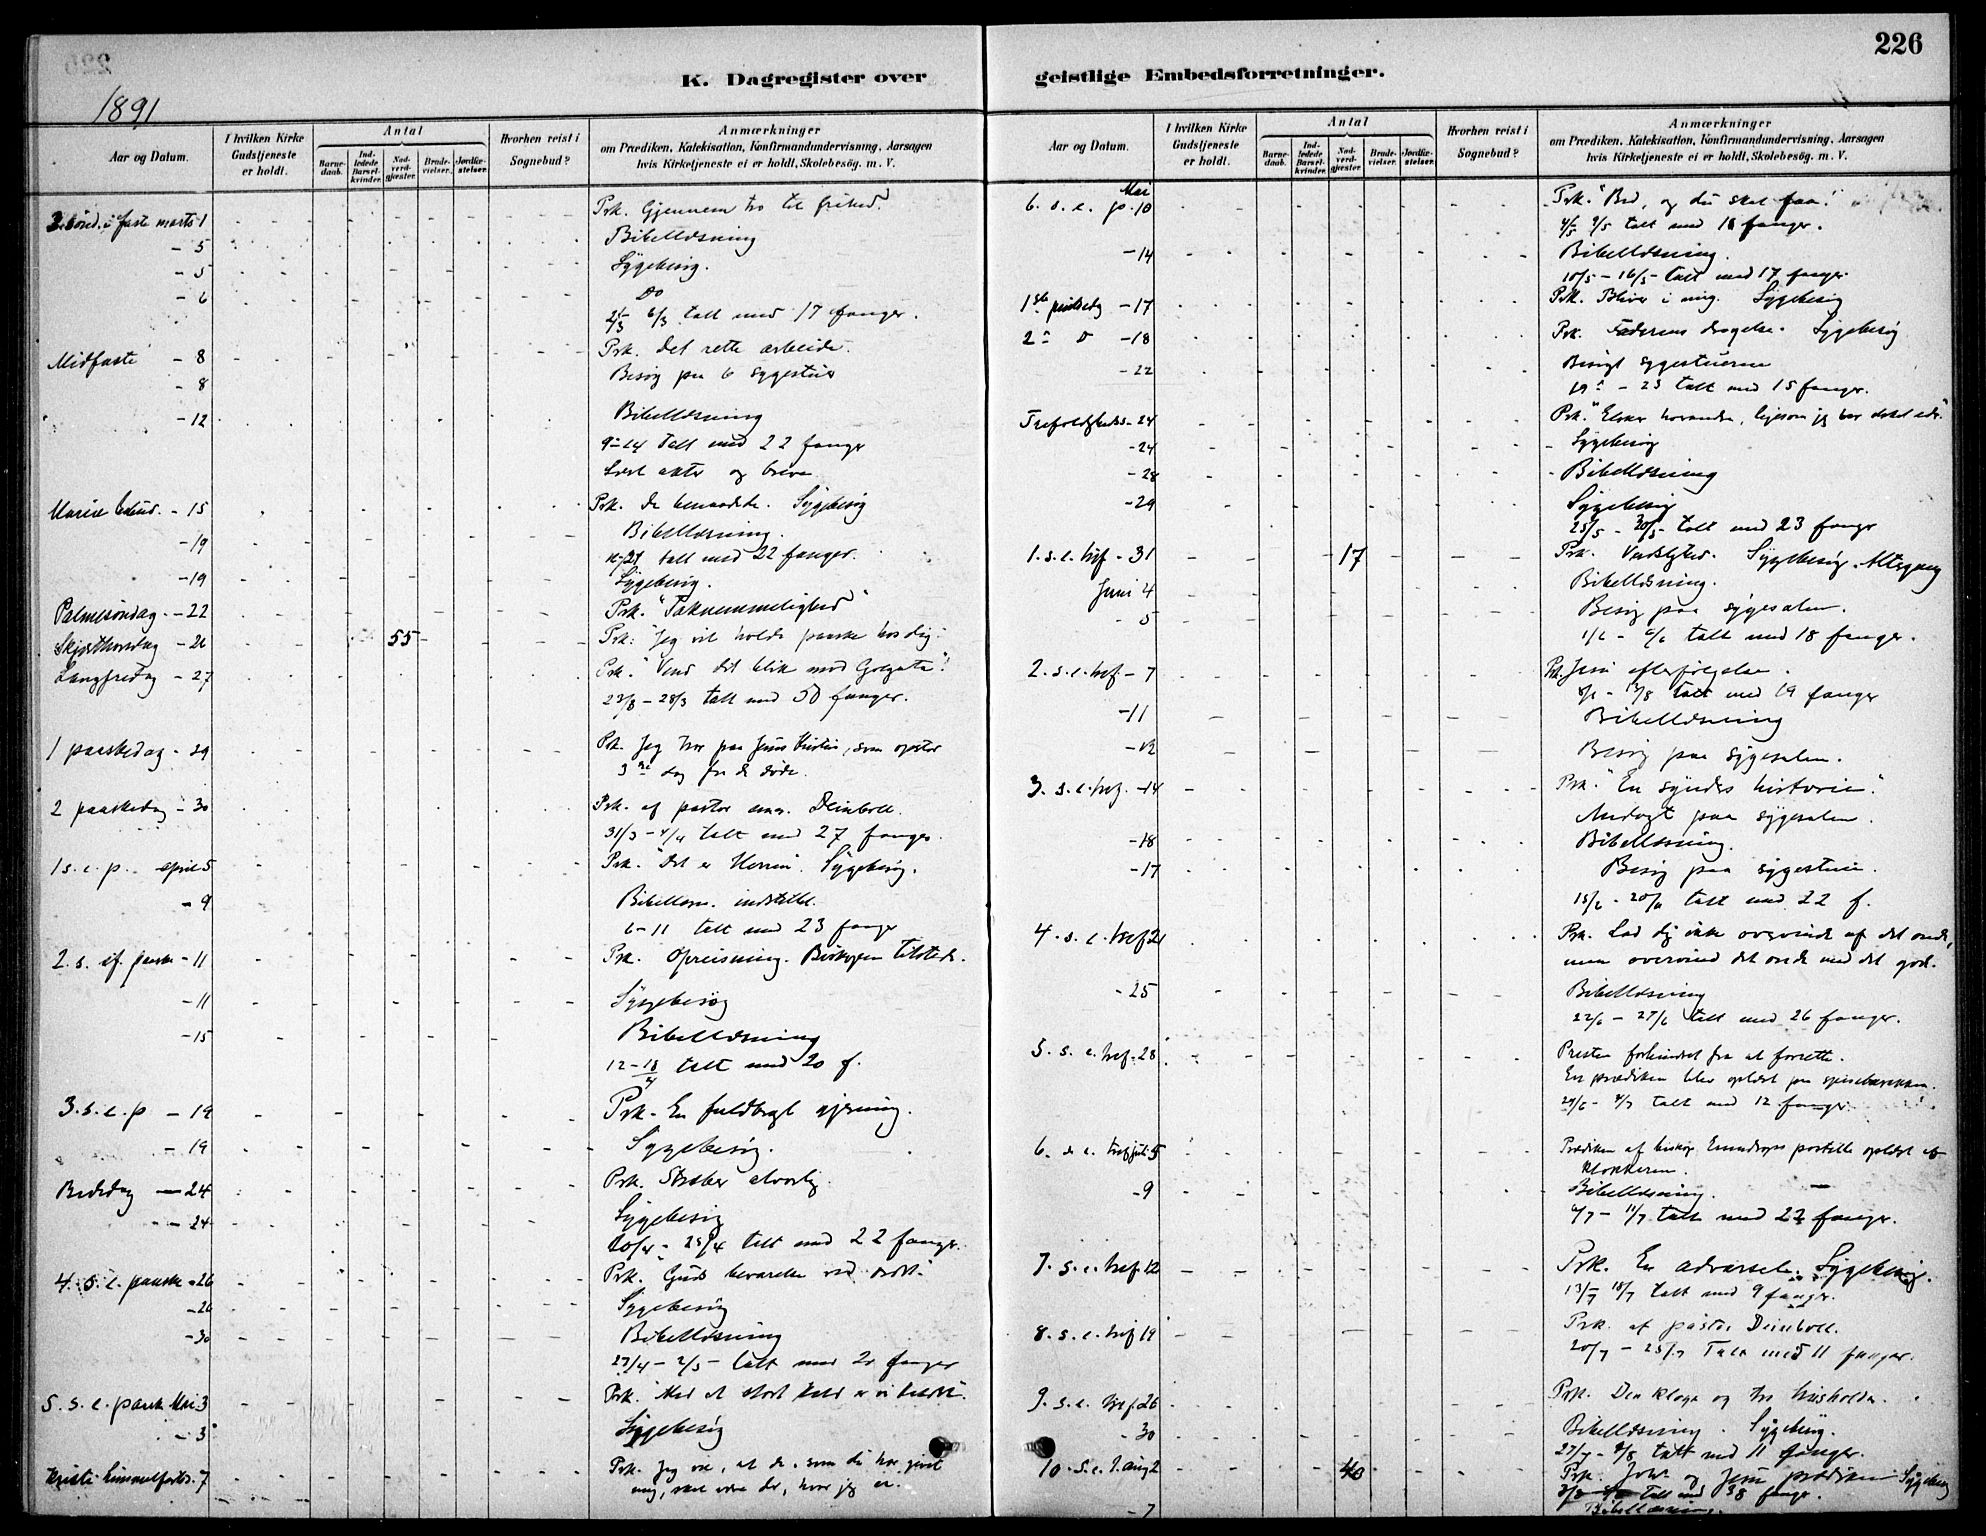 226
K. Dagregister over
geistlige Embedsforretninger.
1891
Aar og Datum.
I hvilken Kirke Gudstjeneste er holdt.
Antal
Barnedaab.
Indledede Barselkvinder.
Nadverdgjæster.
Brudevielser.
Jordfæstelser.
Hvorhen reist i Sognebud?
Anmærkninger
om Prædiken, Katekisation, Konfirmandundervisning, Aarsagen
hvis Kirketjeneste ei er holdt, Skolebesög. m. V.
3. sönd. i faste marts 1 Prk. Gjennem tro til frihed.
- 5 Bibellæsning
- 5 Sygebesög.
- 6 Do
6/3 talt med 17 fanger.
Midfaste - 8 Prk. Det rette arbeide.
- 8 Besög paa 6 sygestuer
- 12 Bibellæsning
9-14 talt med 22 fanger
Læst akter og breve
Mariæ - 15 Prk. De benaadede. Sygebesög
- 19 Bibellæsning.
talt med 22 fanger.
- 19 Sygebesög.
Palmesöndag - 22 Prk. "Taknemmelighed"
Skjærthorsdag - 26 55 Prk. "Jeg vil holde paaske hos dig."
Langfredag - 27 Prk. "Vend dit blik mod Golgata"!
- 28/3 talt med 50 fanger.
1 paaskedag - 29 Prk. Jeg tror paa Jesus Kristus, som opstod
3die dag fra de döde.
2 paaskedag - 30 Prk. af pastor Deinboll.
31/3 - 4/4 talt med 27 fanger.
1 s. e. p. april 5 Prk. "Det er Herren. Sygebesög.
- 9 Bibellæsn. indstillet.
6-11 talt med 23 fanger
2. s. ef. paaske - 11 Prk. Opreisning. Biskopen tilstede.
- 11 Sygebesög
- 15 Bibellæsning
12-18/4 talt med 20 f.
3. s. e. p - 19 Prk. En fuldbragt gjerning.
- 19 Sygebesög.
Bededag - 24 Prk. Stræber alvorlig.
- 24 Sygebesög
20/4 - 25/4 talt med 22 fanger.
4. s. e. paaske - 26 Prk. "Guds bevarelse
- 26 Sygebesög
- 30 Bibellæsning
27/4 - 2/5 - talt med 20 fanger
5. s. e. paask Mai 3 Prk. "Med et stort
- 3 Sygebesög
Kristi himmelfartsd. 7 Prk. Jeg vil, at de, som du har givet
mig, skal være der, hvor jeg er.
Aar og Datum.
I hvilken Kirke Gudstjeneste er holdt.
Antal
Barnedaab.
Indledede Barselkvinder.
Nadverdgjæster.
Brudevielser.
Jordfæstelser.
Hvorhen reist i Sognebud?
Anmærkninger
om Prædiken, Katekisation, Konfirmandundervisning, Aarsagen
hvis Kirketjeneste ei er holdt, Skolebesög. m. V.
Mai
6. s. e. p. 10 Prk. "Bed, og du skal faa."
4/5 9/5 talt med 18 fanger.
- 14 Bibellæsning.
- 16/5 - talt med 17 fanger.
1ste pintsedag - 17 Prk. Bliver i mig. Sygebesög
2 D - 18 Prk. Faderens dragelse. Sygebesög
- 22 Besögt sygestuerne
19 - 23 talt med 15 fanger.
Trefoldigheds - 24 Prk. "Elsker hverandre, ligesom jeg har elsket eder"
- 24 Sygebesög
- 28 Bibellæsning
- 29 Sygebesög
25/5 - 30/5 - talt med 23 fanger
1. s. e. tref - 31 17 Prk. Sygebesög. Altergang
Juni 4 Bibellæsning.
- 5 Besög paa sygesalen.
1/6 - 6/6 talt med 18 fanger.
2. s. e. tref - 7 Prk. Jesu efterfölgelse.
talt med 19 fanger
- 11 Bibellæsning
- 12 Besög paa sygesalen.
3. s. e. tref. - 14 Prk. "En synders historie".
Andagt paa sygesalen.
- 18 Bibellæsning.
- 17 Besög paa sygestuen.
15/6 - 20/6 talt med 22 f.
4. s. e. tref 21 Prk. Lad dig ikke overvinde af det onde,
men overvind det onde med det gode.
- 25 Bibellæsning
22/6 - 27/6 talt med 26 fanger.
5. s. e. tref. 28 Presten forhindret fra at forrette.
En prædiken blev oplæst paa
29/6 - 4/7 talt med 12 fanger.
6. s. e. tref juli 5 Prædiken af biskop postille oplæst af
klokkeren.
- 9 Bibellæsning.
6/7 - 11/7 talt med 22 fanger.
7. s. e. tref. 12 Prk. En advarsel. Sygebesög.
13/7 18/7 talt med 9 fanger.
8. s. e. tref 19 Prk. af pastor Deinboll.
20/7 - 25/7 Talt med 11 fanger.
9. s. e. tref. 26 Prk. Den kloge og tro husholder.
- 30 Bibellæsning. Sygebesög.
talt med 11 fanger.
10. s. e. t. aug 2 40 Prk. Joh. og Jesu prædiken Sygebesög
talt med 38 fanger.
- 7 Bibellæsning.